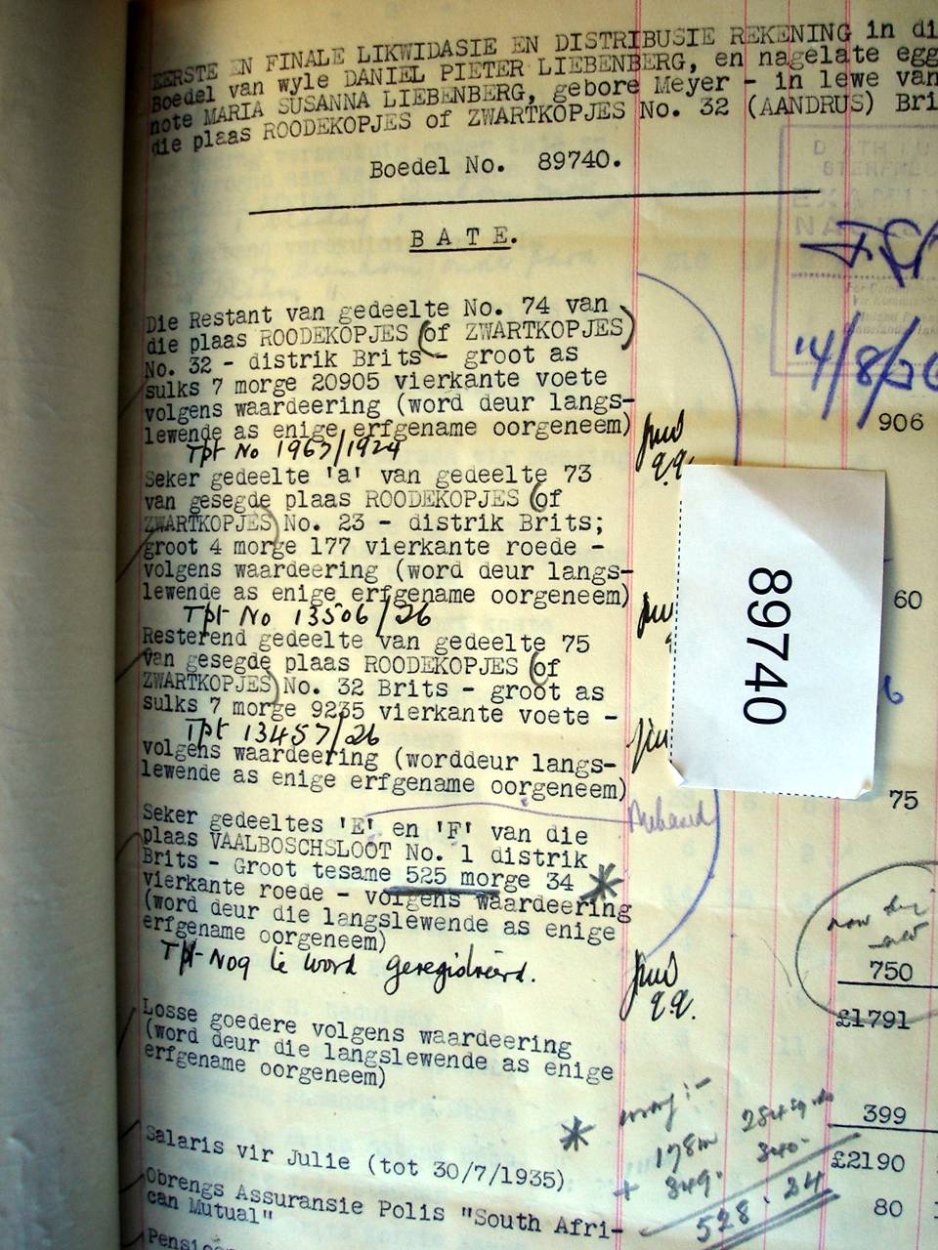 EERSTE EN FINALE LIKWIDASIE EN DISTRIBUSIE REKENING in di
Boedel van wyle DANIEL PIETER LIEBENBERG, en nagelate egg
note MARIA SUSANNA LIEBENBERG, gebore Meyer - in lewe van
die plaas ROODEKOPJES of ZWARTKOPJES No. 32 (AANDRUS) Bri
Boedel No. 89740.
B A T E.
Die Restant van gedeelte No. 74 van
die plaas ROODEKOPJES (of ZWARTKOPJES)
No. 32 - distrik Brits - groot as
sulks 7 morge 20905 vierkante voete
volgens waardeering (word deur langs-
lewende as enige erfgename oorgeneem) 906
Tpt No 1963/1924
q.q.
14/8/26
Seker gedeelte 'a' van gedeelte 73
van gesegde plaas ROODEKOPJES (of
ZWARTKOPJES) No. 23 - distrik Brits;
groot 4 morge 177 vierkante roede -
volgens waardeering (word deur langs-
lewende as enige erfgename oorgeneem) 60
Tpt No 13506/26
89740
Resterend gedeelte van gedeelte 75
van gesegde plaas ROODEKOPJES (of
ZWARTKOPJES) No. 32 Brits - groot as
sulks 7 morge 9235 vierkante voete -
Tpt 13457/26
volgens waardeering (worddeur langs-
lewende as enige erfgename oorgeneem) 75
Seker gedeeltes 'E' en 'F' van die
plaas VAALBOSCHSLOOT No. 1 distrik
Brits - Groot tesame 525 morge 34 *
vierkante roede - volgens waardeering
(word deur die langslewende as enige
erfgename oorgeneem) 750
Tpt Nog te word geregistreerd.
q.q.
£1791
Losse goedere volgens waardeering
(word deur die langslewende as enige
erfgename oorgeneem) 399
*
178m 284 sq
+ 349. 340.
528. 24
£2190
Salaris vir Julie (tot 30/7/1935) 80
Obrengs Assuransie Polis "South Afri-
can Mutual"